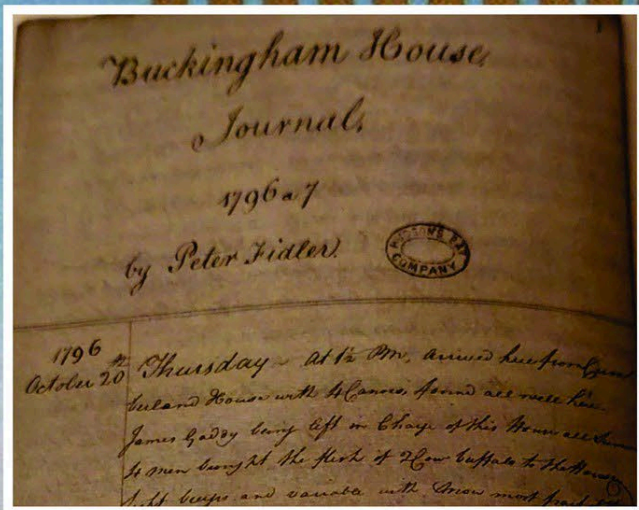 Buckingham House
Journal,
1796 a 7
by Peter Fidler.
HUDSON'S BAY
COMPANY
1796
October 20th Thursday - At ½ PM, arrived here from Cum
berland House with 4 Canoes, found all well here.
James Gaddy being left in Charge of this House all Summer
4 men brought the flesh of 2 Cow buffalo to the House
and variable with Snow most part